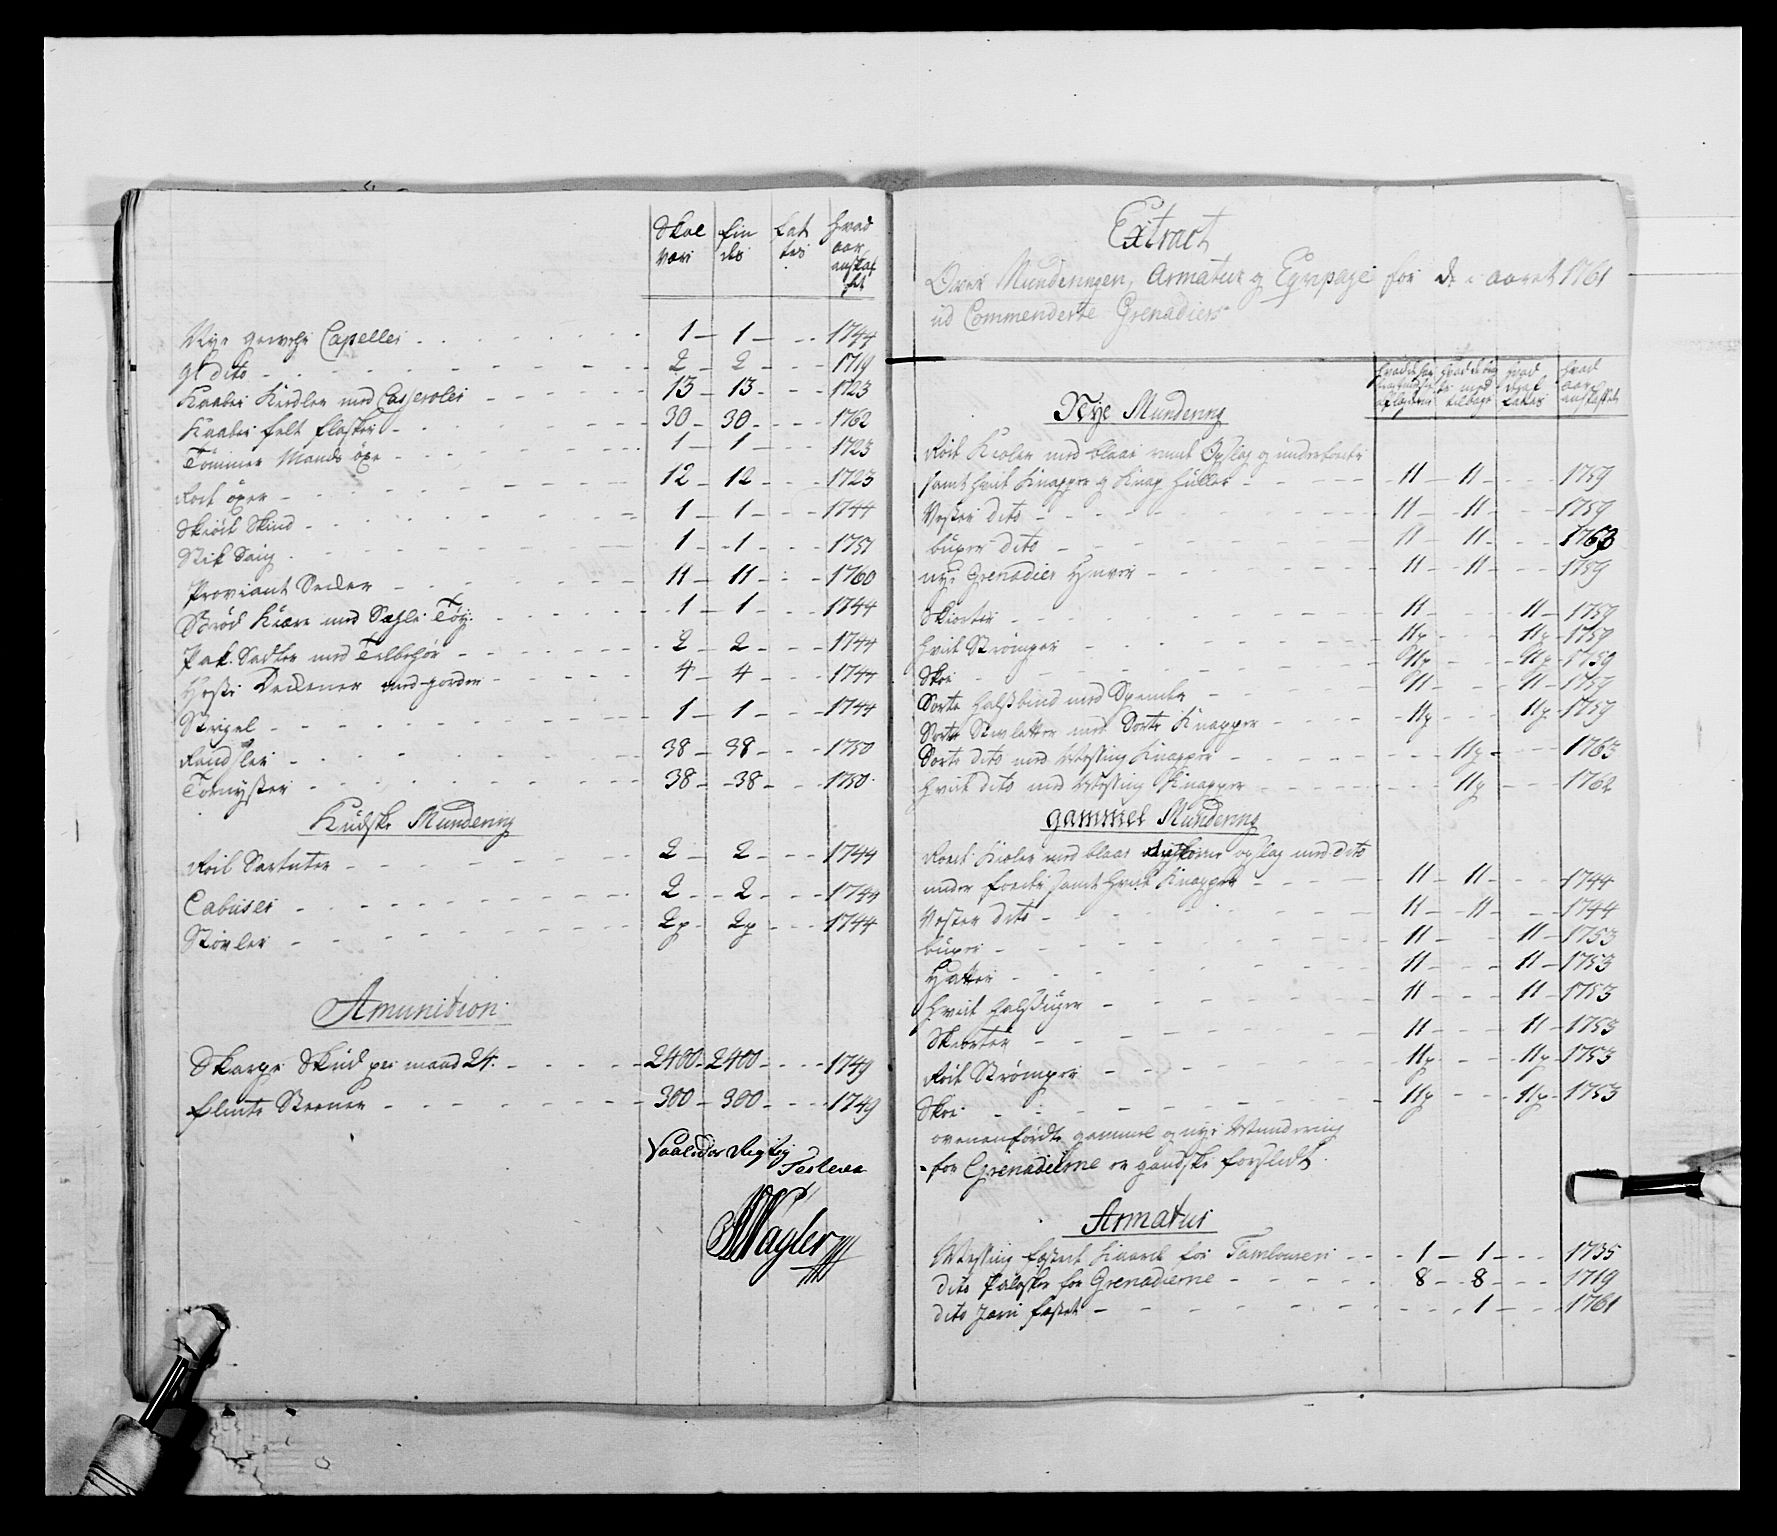 Skal være | fin des | fat tes | hvad aar anskaffet
Nye gewehr Capeller - 1 - 1 - - 1744
gl dito - 2 - 2 - - 1719
Kaaber Kiedler med Casseroler - 13 - 13 - - 1723
Kaaber felt flasker - 30 - 30 - - 1762
Tømmer Mands öxe - 1 - 1 - - 1723
Roet öxer - 12 - 12 - - 1723
Skiöd Skind - 1 - 1 - - 1744
Stik Saug - 1 - 1 - - 1757
Proviant Secker - 11 - 11 - - 1760
Brød Kiære med Sæhle Tøy - 1 - 1 - - 1744
Pak Sadler med Tilbehør - 2 - 2 - - 1744
Heste Deckener med gorder - 4 - 4 - - 1744
Strigel - 1 - 1 - - 1744
Randsler - 38 - 38 - - 1750
Tornyster - 38 - 38 - - 1750
Kudske Mundering
Roed Sartuter - 2 - 2 - - 1744
Cabuser - 2 - 2 - - 1744
Støvler - 2p - 2p - - 1744
Amunition
Skarpe Skud per mand 24 - 2400 - 2400 - - 1749
flinte Steener - 300 - 300 - - 1749
Saaledes Rigtig
Testerer
Wagler
Extract
Over Munderingen, Armatur og Eqvipage for de i aaret 1761
ud Commenderte Grenadiers
hvad aar anskaffet
Nye Mundering
Roed Kioler med blaae Opslag og underfoeder
samt hvid Knapper og Knap huller - 11 - 11 - - 1759
Vester dito - 11 - 11 - - 1759
buxer dito - 11 - 11 - - 1763
nye Grenadier Huver - 11 - 11 - - 1759
Skiorter - 11 - - 11 - 1759
hvid Strømper - 11p - - 11p - 1759
Skoe - 11p - - 11p - 1759
Sorte halsbind med Spender - 11 - - 11 - 1759
Sorte Stevletter med Sorte Knapper - 11p - - 11p - 1759
Sorte dito med Messing Knapper - - 11p - - 1763
hvid dito med Messing Knapper - - 11p - - 1762
gammel Mundering
Roed Kioler med blaae opslag med dito
under foeder samt hvid Knapper - 11 - 11 - - 1744
Vester dito - 11 - 11 - - 1744
buxer - 11 - - 11 - 1753
Hatter - 11 - - 11 - 1753
hvid halstuger - 11 - - 11 - 1753
Skiorter - 11 - - 11 - 1753
Roed Strømper - 11p - - 11p - 1753
Skoe - 11p - - 11p - 1753
ovenenførdte gammel og nye Mundering
for Grenaderne er gandske forslidt
Armatur
Messing fæsted Kaarde for Tambouren - 1 - 1 - - 1735
dito Palasker for Grenadierne - 8 - 8 - - 1719
dito Jern fæsted - - 1 - - 1761